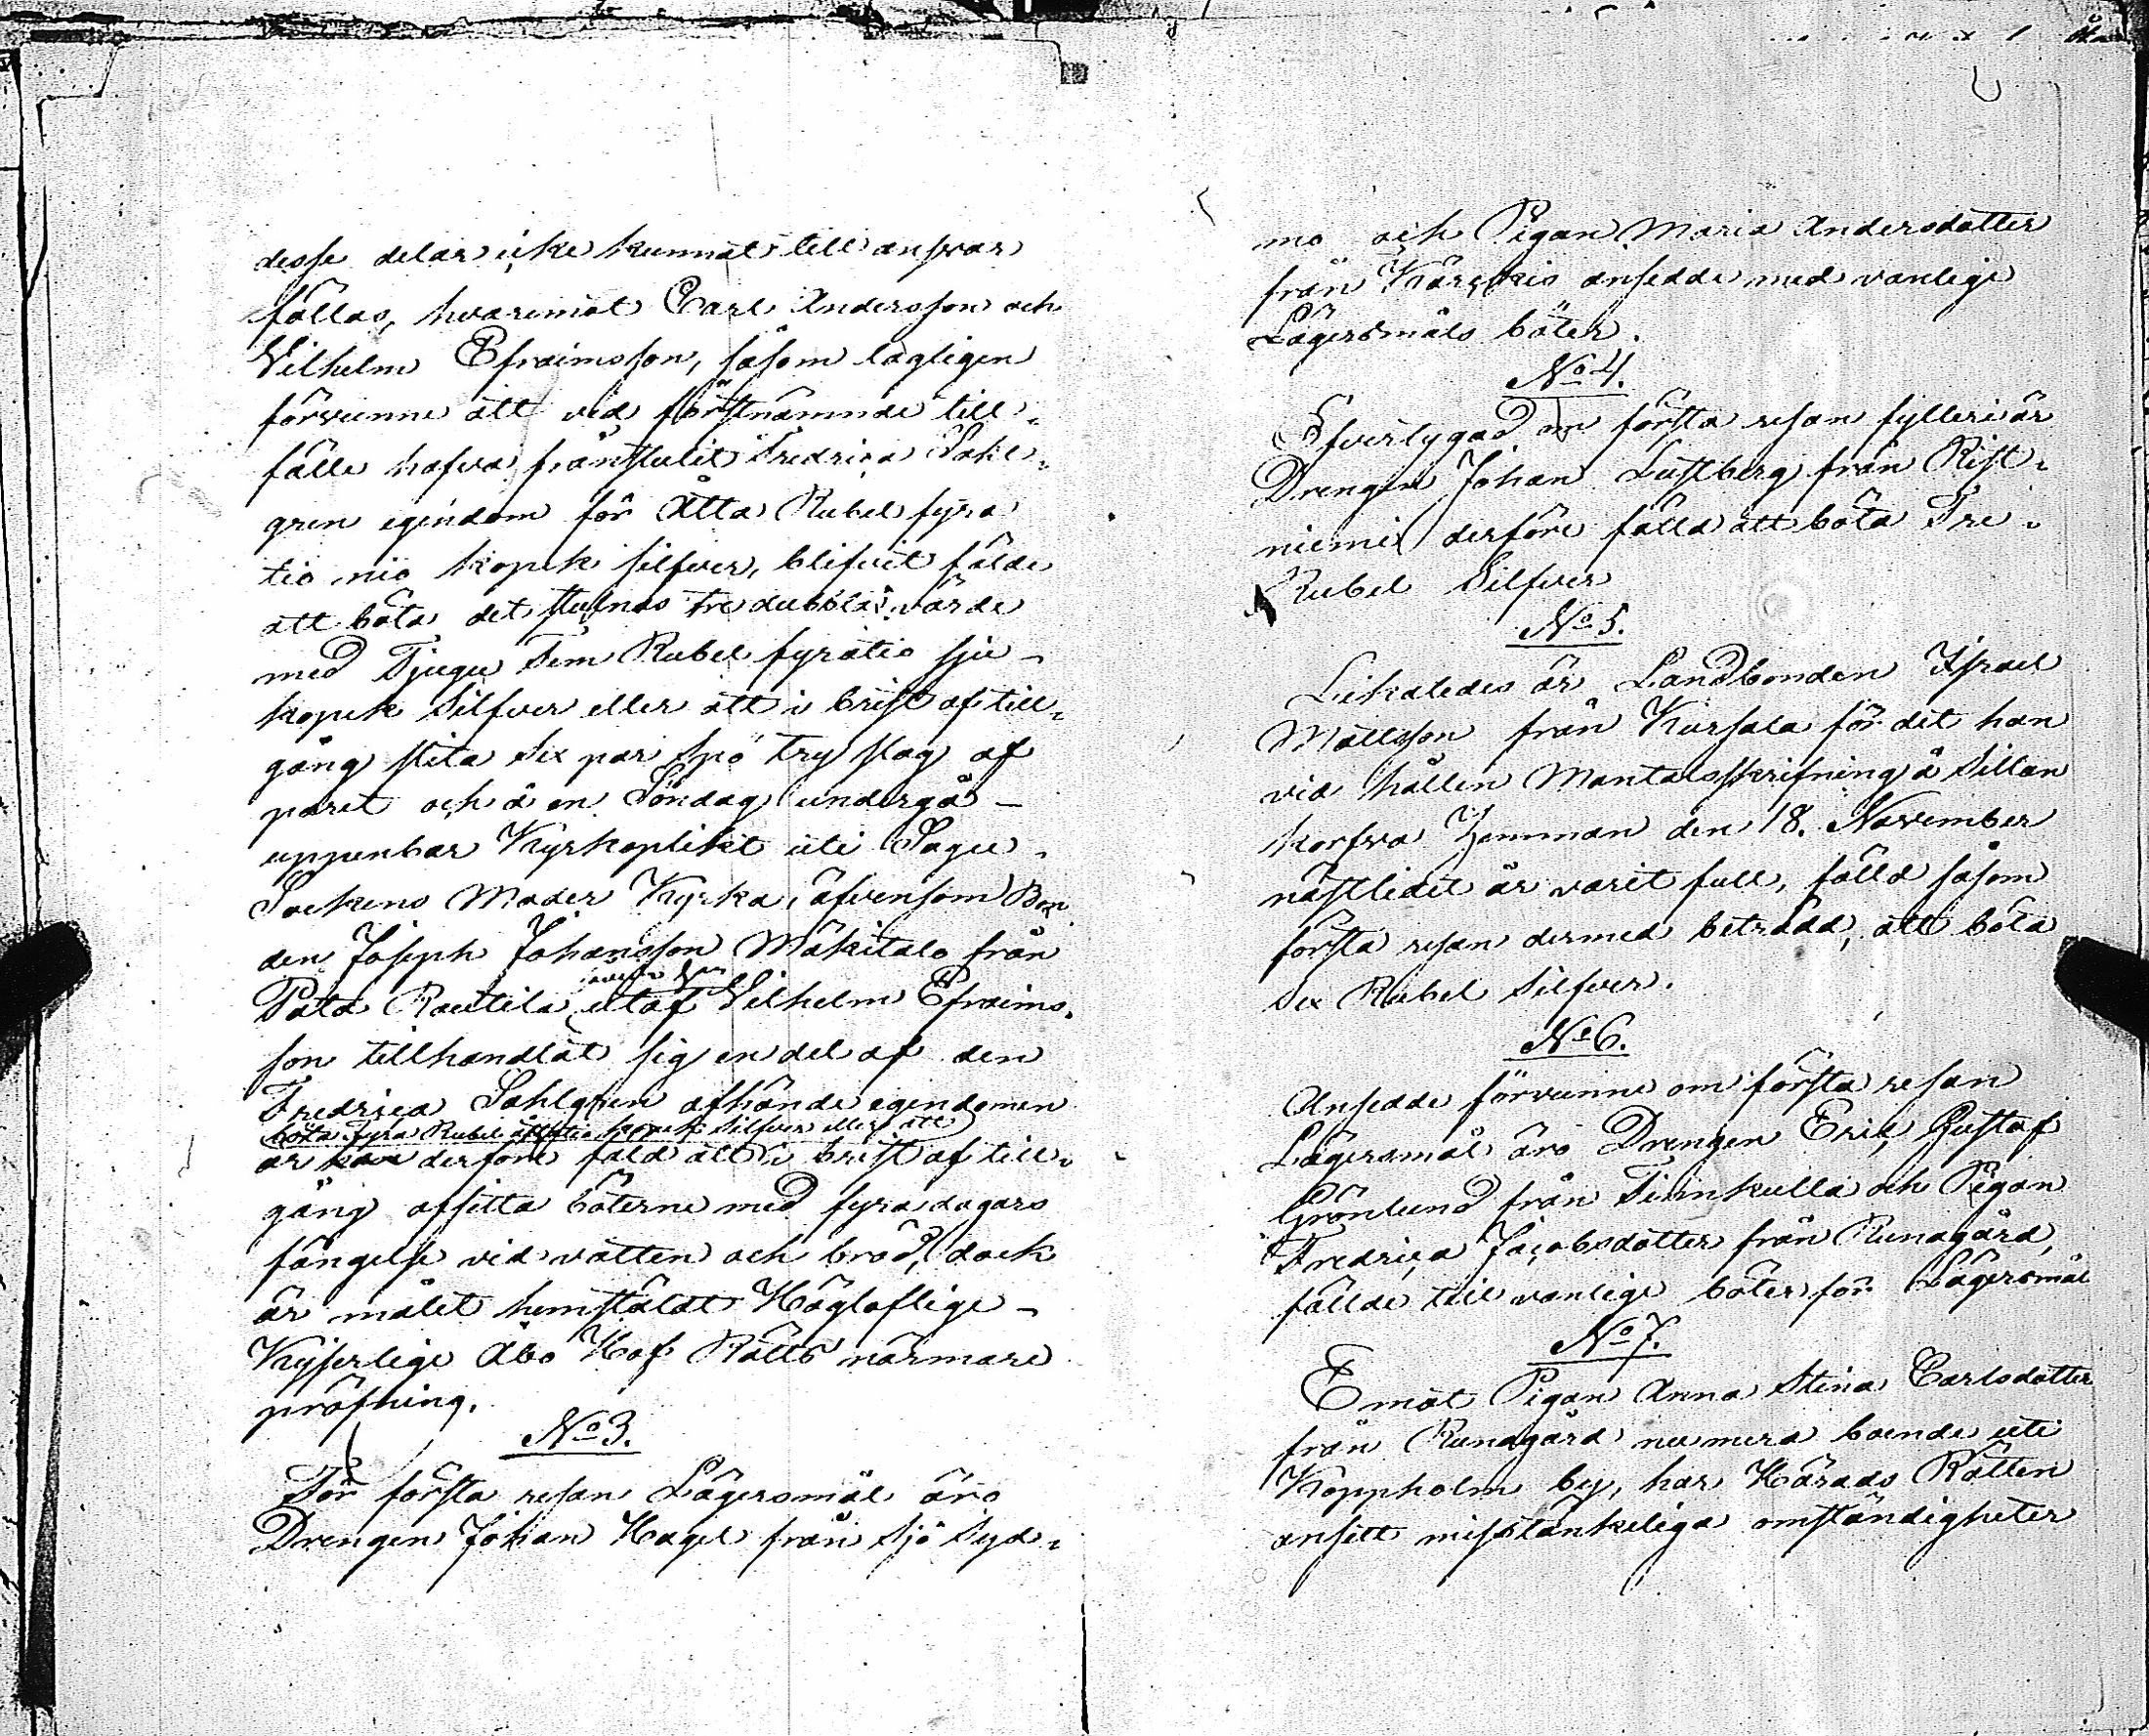 desse delar icke kunnat till answar
fällas, hwaremot Carl Andersson och
Wilhelm Efraimsson, såsom lagligen
förvunne att vid förstnämnde till-
fälle hafva frånstulit Fredrica Sahl-
gren egendom för Åtta Rubel fyra
tio nio kopek silfver, blifvit fälde
att böta det stulnas tre dubbla värde
med Tjugu Fem Rubel fyratio sju
kopek Silfver eller att i brist af till-
gång slita Sex par Spö try slag af
paret och å en Söndag undergå
uppenbar Kyrkoplikt uti Sagu
Sockens Moder Kyrka, äfvensom Bon
den Joseph Johansson Mäkitalo från
Pata Rautila utaf Wilhelm Efraims-
son tillhandlat sig en del af den
Fredrica Sahlgren afhände egendomen
böta Fyra Rubel åttatio kopek Silfver eller att
är derföre fäld att i brist af till-
gång afsitta böterne med fyra dagars
fängelse vid vatten och bröd, dock
är målet hemstäldt Högloflige
Kejserlige Åbo Hof Rätts närmare
pröfning.
No 3.
För första resan Lägersmål äro
Drengen Johan Hagel från Sjö Syd-
mo och Pigan Maria Andersdotter
från Kärckis ansedde med vanlige
Lägersmåls böter.
No 4.
Öfvertygad om första resan fylleri är
Drengen Johan Lustberg från Rist-
niemi derföre fälld att böta Tre
Rubel Silfver
No 5.
Likaledes är Landbonden Israel
Mattsson från Kursala för det han
vid hållen Mantalsskrifning å Sillan
korfva Hemman den 18. November
nästlidit år varit full, fälld såsom
första resan dermed beträdd, att böta
Sex Rubel Silfver.
No 6.
Ansedde förvunne om första resan
Lägersmål äro Drengen Eric Gustaf
Grönlund från Finnkulla och Pigan
Fredrica Jacobsdotter från Runagård,
fällde till vanlige böter för Lägersmål
No 7.
Emot Pigan Anna Stina Carlsdotter
från Runagård numera boende uti
Koppholm by, har Härads Rätten
ansett misstänkeliga omständigheter